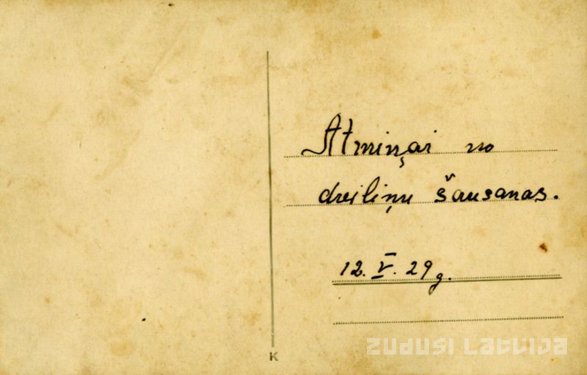 Atmiņai no
dreiliņu šaušanas.
12. V. 29g.
K
ZUDUSI LATVIJA